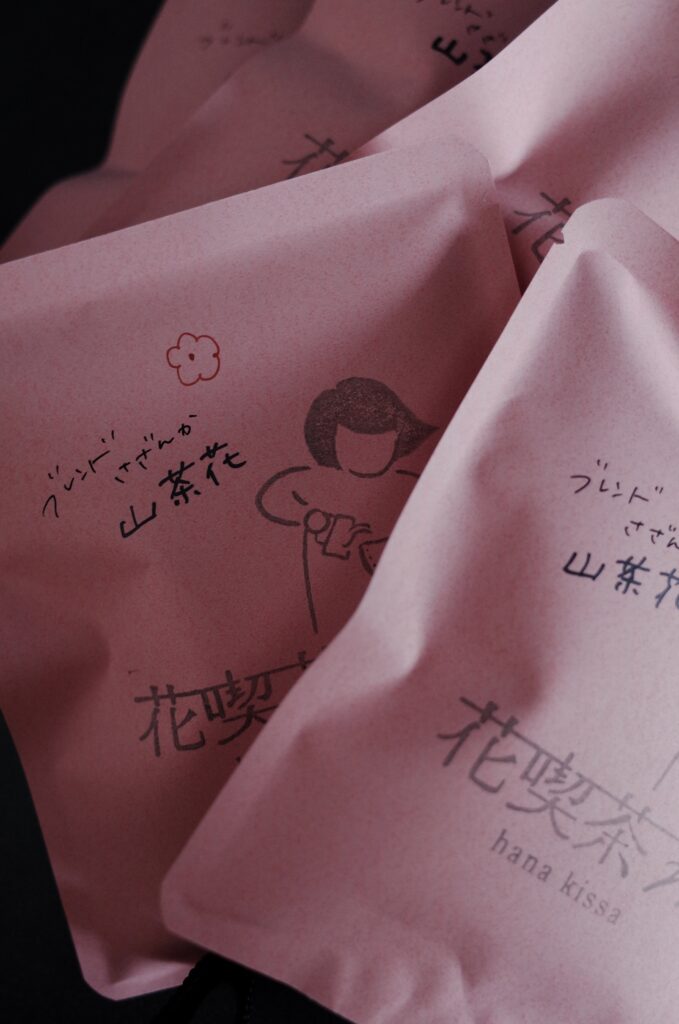 ブレンド
さざんか
山茶花
花喫
ブレンド
さざん
山茶花
花喫茶
hana kissa
ブレンド
さざ
山
花
花